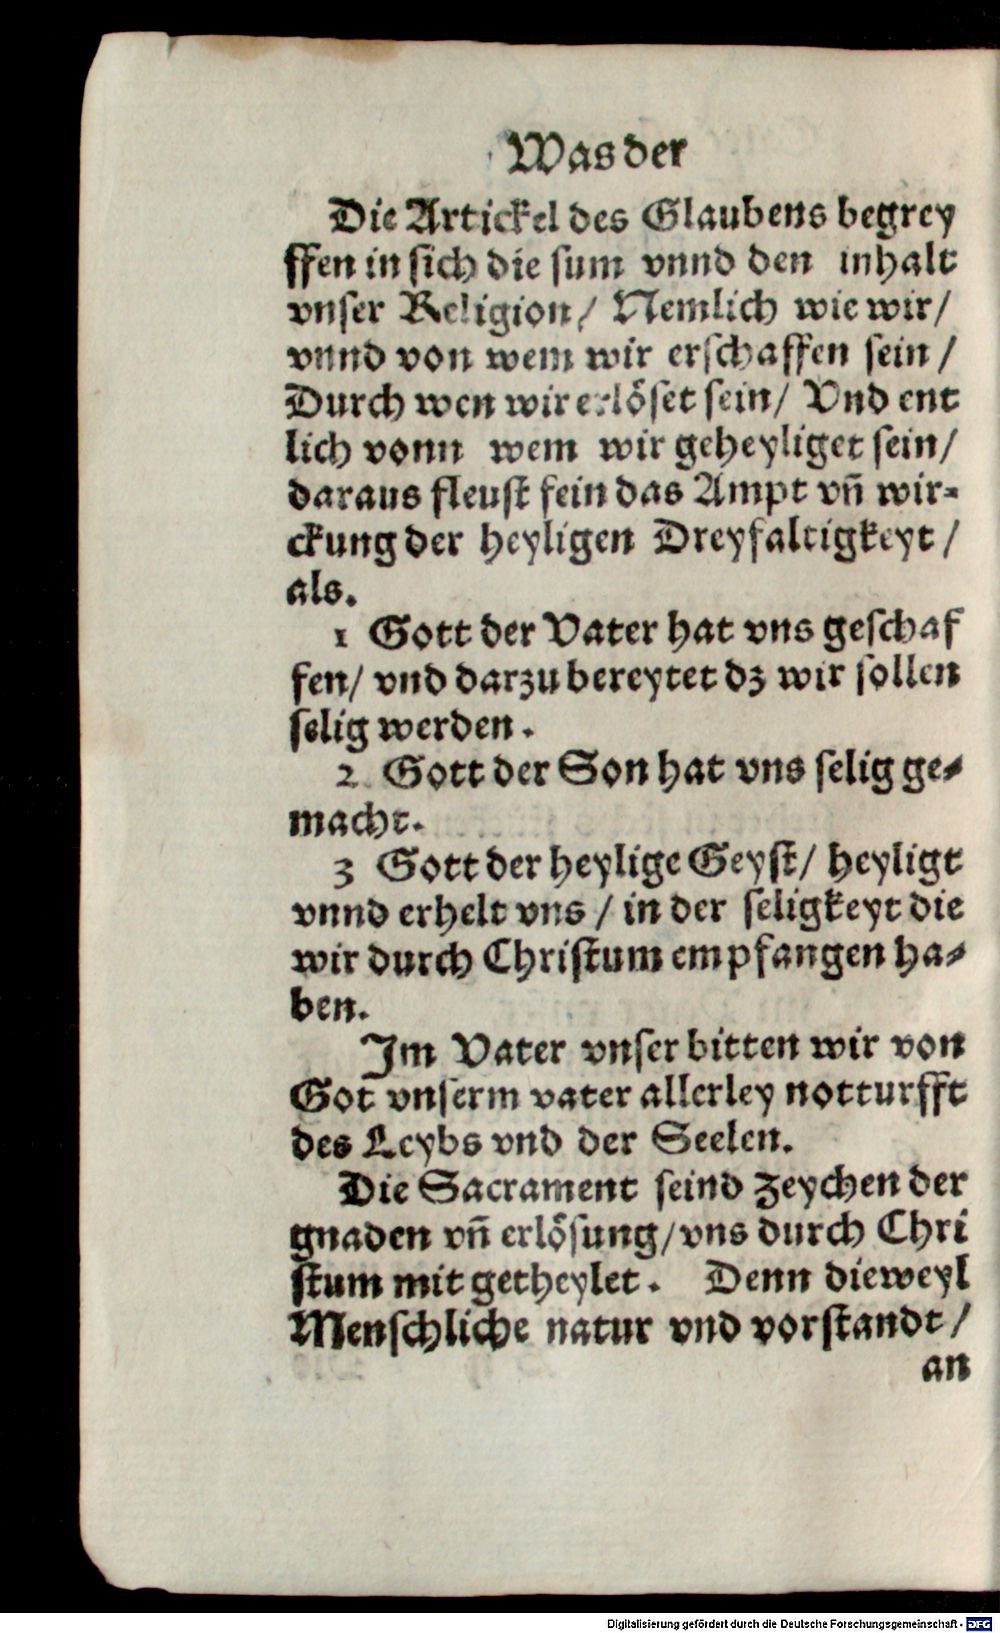 Was der
Die Artickel des Glaubens begrey
ffen in sich die sum vnnd den inhalt
vnser Religion/ Nemlich wie wir/
vnnd von wem wir erschaffen sein/
Durch wen wir erlöset sein/ Vnd ent
lich vonn wem wir geheyliget sein/
daraus fleust fein das Ampt vn̄ wir=
ckung der heyligen Dreyfaltigkeyt/
als.
1 Gott der Vater hat vns geschaf
fen/ vnd darzu bereytet dz wir sollen
selig werden.
2 Gott der Son hat vns selig ge=
macht.
3 Gott der heylige Geyst/ heyligt
vnnd erhelt vns/ in der seligkeyt die
wir durch Christum empfangen ha=
ben.
Im Vater vnser bitten wir von
Got vnserm vater allerley notturfft
des Leybs vnd der Seelen.
Die Sacrament seind zeychen der
gnaden vn̄ erlösung/ vns durch Chri
stum mit getheylet. Denn dieweyl
Menschliche natur vnd vorstandt/
an
Digitalisierung gefördert durch die Deutsche Forschungsgemeinschaft - DFG